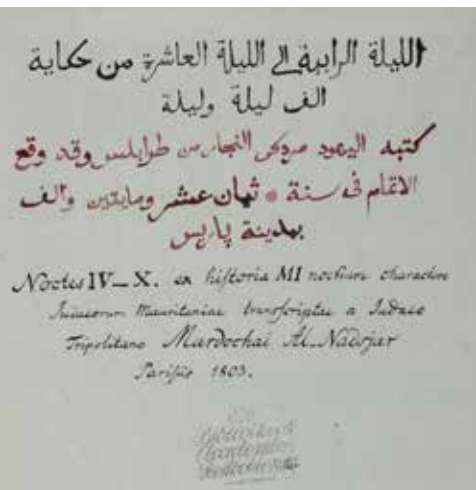 الليلة الرابعة الى الليلة العاشرة من حكاية
الف ليلة وليلة
كتبه اليهود مردخى النجار من طرابلس وقد وقع
الاتمام فى سنة ثمان عشر ومايتين والف
بمدينة پاريس
Noctes IV—X. ex historia MI noctium charactere
Judaeorum Mauritaniae transscriptae a Judaeo
Tripolitano Murdochai Al-Nadsjar
Parisiis 1803.